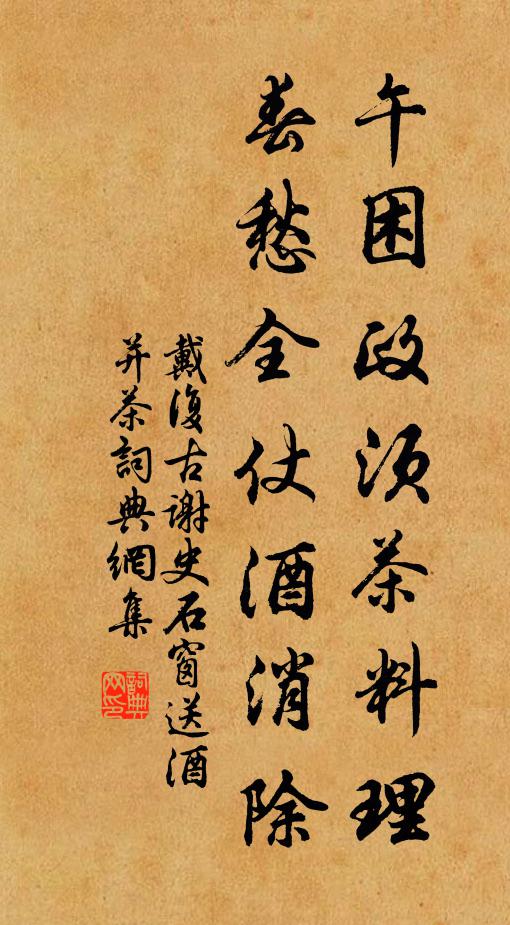 午困政須茶料理
春愁全仗酒消除
戴復古謝史石窗送酒
并茶詞典網集
詞典網印